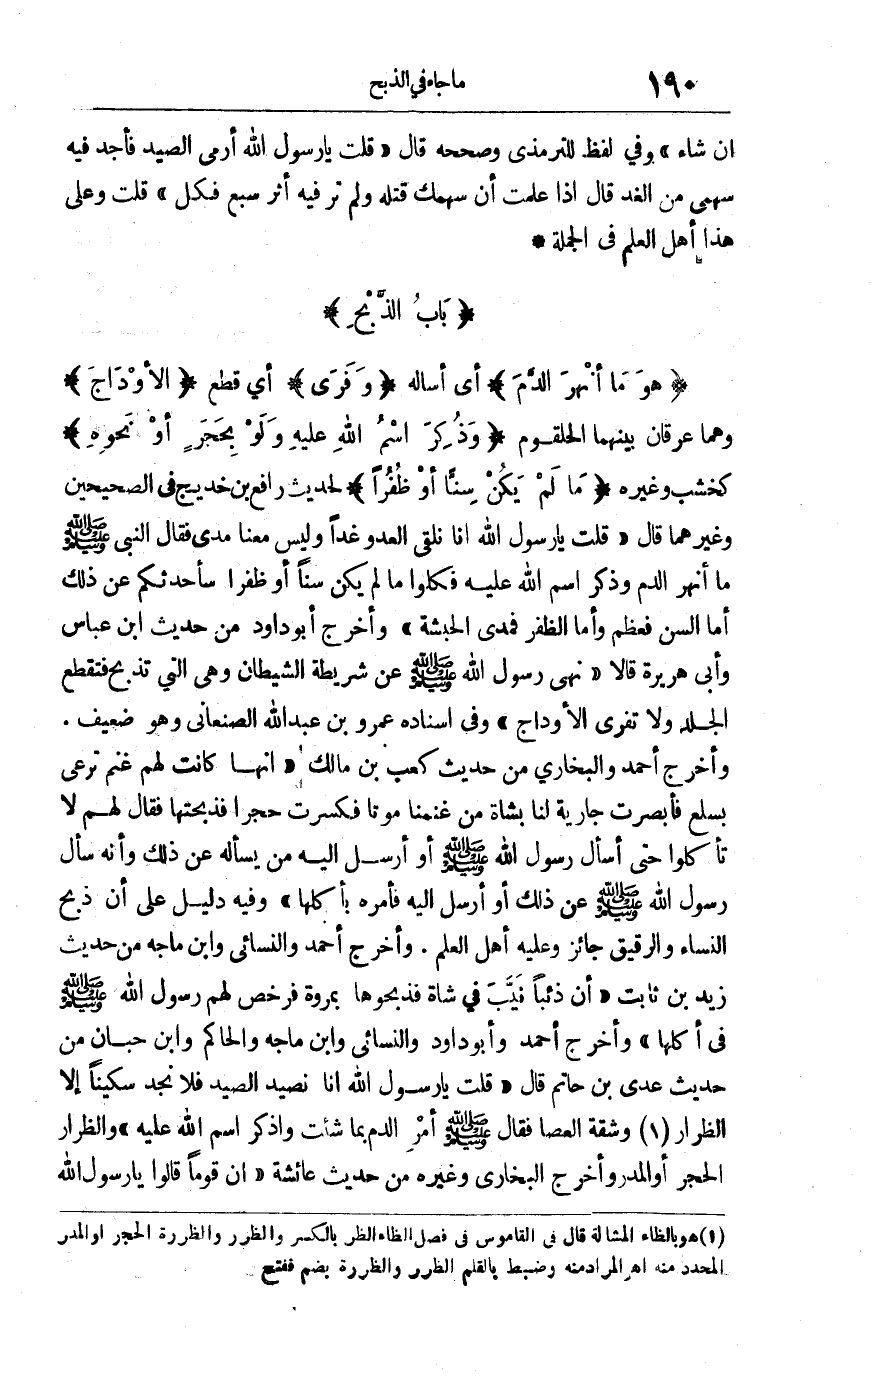 ١٩٠
ما جاء في الذبح
ان شاء » وفي لفظ للترمذى وصححه قال « قلت يارسول الله أرمى الصيد فأجد فيه
سهمى من الغد قال اذا علمت أن سهمك قتله ولم تر فيه أثر سبع فكل » قلت وعلى
هذا أهل العلم فى الجملة *
﴿ بَابُ الذَّبْحِ ﴾
﴿ هوَ مَا أنْهرَ الدَّمَ ﴾ أى أساله ﴿ وَفَرَى ﴾ أي قطع ﴿ الأوْدَاجَ ﴾
وهما عرقان بينهما الحلقوم ﴿ وَذُكِرَ اسْمُ اللهِ عليهِ وَلَوْ بِحَجَرٍ أوْ نَحوِهِ ﴾
كخشب وغيره ﴿ مَا لَمْ يَكُنْ سِنًّا أوْ ظُفُراً ﴾ لحديث رافع بن خديج فى الصحيحين
وغيرهما قال « قلت يارسول الله انا نلقى العدو غداً وليس معنا مدى فقال النبى ﷺ
ما أنهر الدم وذكر اسم الله عليه فكلوا ما لم يكن سناً أو ظفرا سأحدثكم عن ذلك
أما السن فعظم وأما الظفر فمدى الحبشة » وأخرج أبو داود من حديث ابن عباس
وأبى هريرة قالا « نهى رسول الله ﷺ عن شريطة الشيطان وهى التي تذبح فتقطع
الجلد ولا تفرى الأوداج » وفى اسناده عمرو بن عبدالله الصنعانى وهو ضعيف .
وأخرج أحمد والبخاري من حديث كعب بن مالك « انها كانت لهم غنم ترعى
بسلع فأبصرت جارية لنا بشاة من غنمنا موتا فكسرت حجرا فذبحتها فقال لهم لا
تأكلوا حتى أسأل رسول الله ﷺ أو أرسل اليه من يسأله عن ذلك وأنه سأل
رسول الله ﷺ عن ذلك أو أرسل اليه فأمره بأكلها » وفيه دليل على أن ذبح
النساء والرقيق جائز وعليه أهل العلم . وأخرج أحمد والنسائى وابن ماجه من حديث
زيد بن ثابت « أن ذئباً نَيَّبَ في شاة فذبحوها بمروة فرخص لهم رسول الله ﷺ
فى أكلها » وأخرج أحمد وأبوداود والنسائى وابن ماجه والحاكم وابن حبان من
حديث عدى بن حاتم قال « قلت يارسول الله انا نصيد الصيد فلا نجد سكيناً إلا
الظرار (١) وشقة العصا فقال ﷺ أمْرِ الدم بما شئت واذكر اسم الله عليه » والظرار
الحجر أوالمدر وأخرج البخارى وغيره من حديث عائشة « ان قوماً قالوا يارسول الله
(١) هو بالظاء المشالة قال فى القاموس فى فصل الظاء الظر بالكسر والظرر والظررة الحجر اوالمدر
المحدد منه اهـ المراد منه وضبط بالقلم الظرر والظررة بضم ففتح